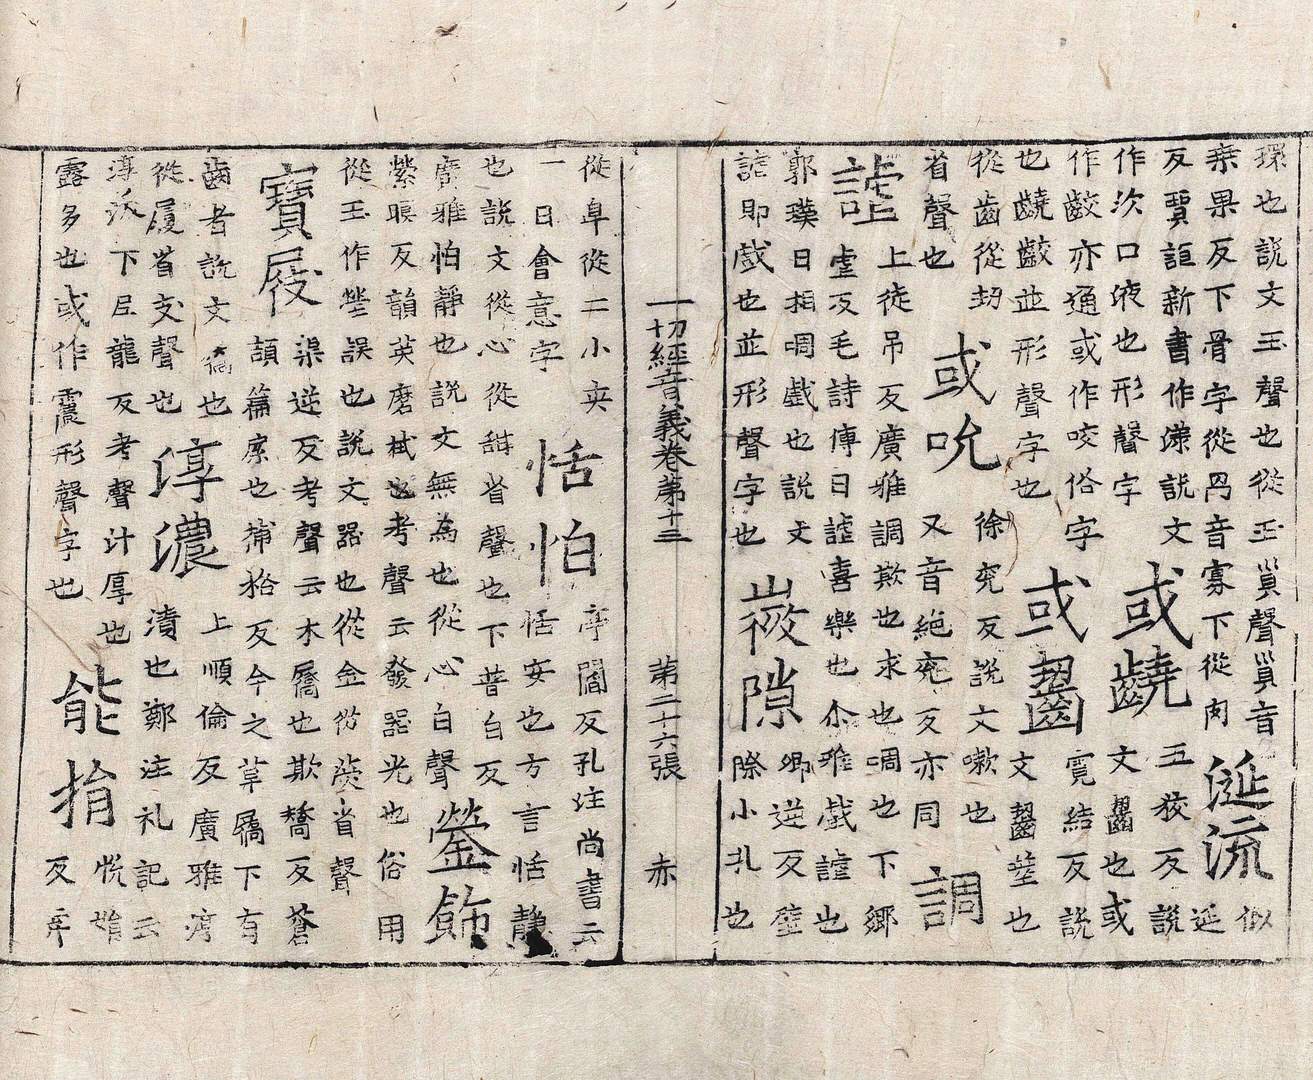 環也說文玉聲也從玉貨聲貨音
桒果反下骨字從冎音寡下從肉
涎流
似延
反賈誼新書作漾說文
作次口液也形聲字
或齩
五狡反說文齧也或
作齩亦通或作咬俗字
或齧
霓結反說文齧噬也
也齩齩並形聲字也
從齒從㓞
或吮
徐兖反說文嗽也
又音絶兖反亦同
省聲也
調謔
上徒吊反廣雅調欺也求也啁也下鄉
虐反毛詩傳曰謔喜樂也尒雅戲謔也
郭璞曰相啁戲也說文
謔即戲也並形聲字也
㣲隙
卿逆反壁
際小孔也
一切經音義卷第十三 第二十六張 赤
從阜從二小夾
一日會意字
恬怕
亭閻反孔注尚書云
恬安也方言恬靜
也說文從心從甜省聲也下普白反
廣雅怕靜也說文無為也從心白聲
鎣飾
縈暝反韻英磨拭也考聲云發器光也俗用
從玉作瑩誤也說文器也從金從熒省聲
寶屐
渠逆反考聲云木屩也欺驕反蒼
頡篇屎也捕袷反今之草屩下有
齒者說文屩也
從履省支聲也
淳濃
上順倫反廣雅淳
漬也鄭注礼記云
淳沃下尼龍反考聲汁厚也
露多也或作震形聲字也
能捐
悅㛐
反卒